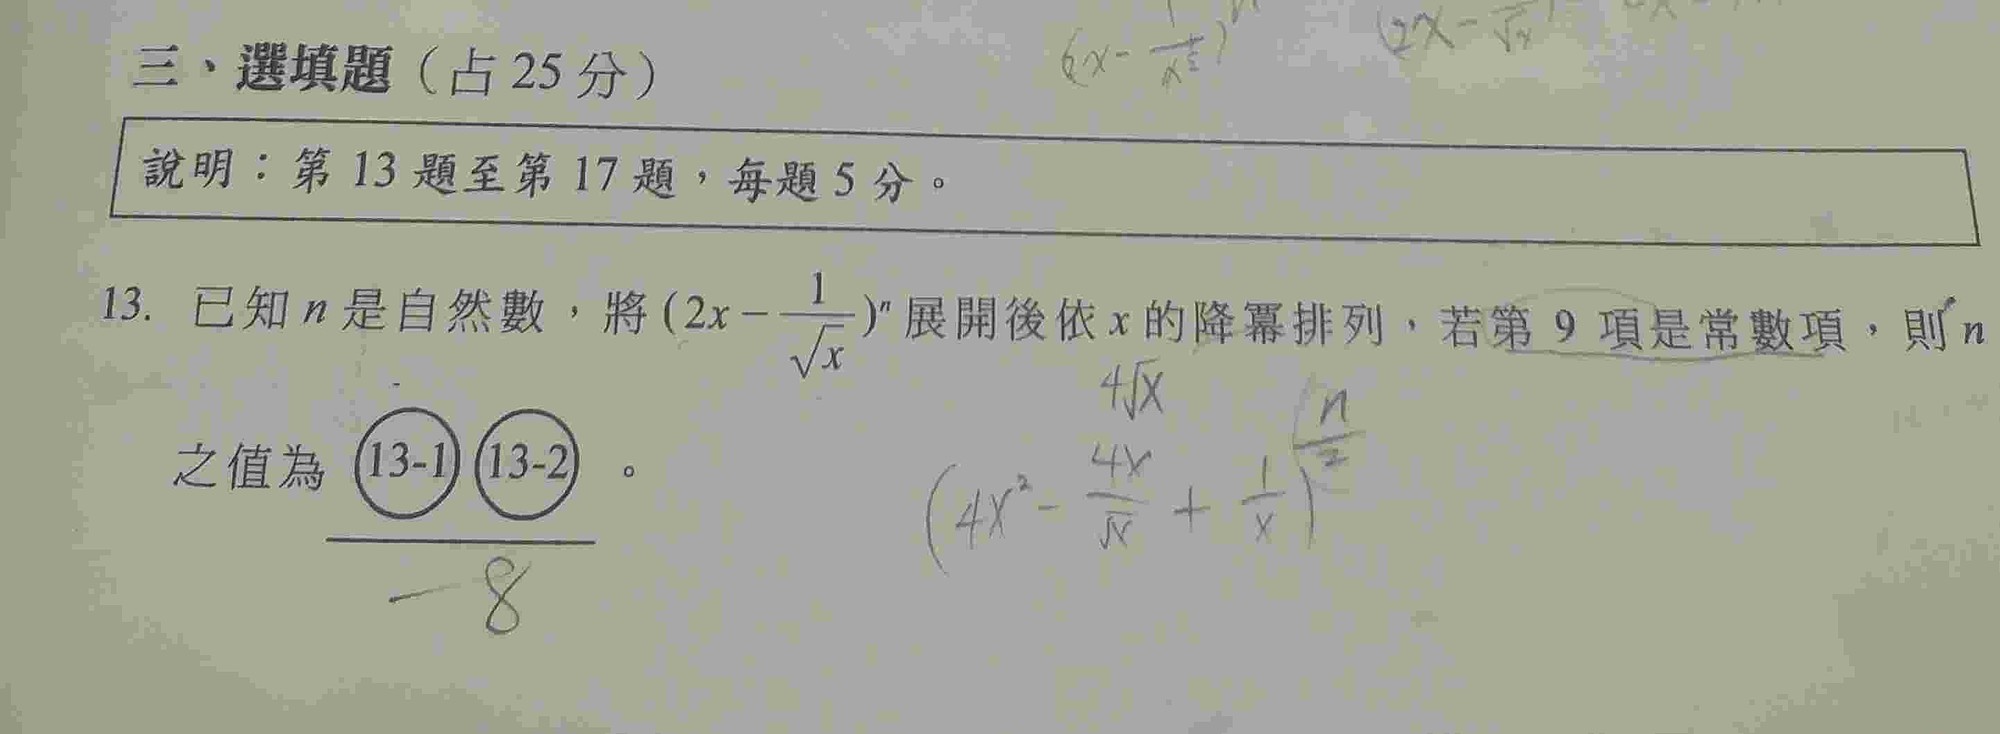 三、選填題（占 25 分）
(x - 1/x²)ⁿ (2x - √x
說明：第 13 題至第 17 題，每題 5 分。
13. 已知 n 是自然數，將 (2x - 1/√x)ⁿ 展開後依 x 的降冪排列，若第 9 項是常數項，則 n
4√x
之值為 (13-1) (13-2) 。
(4x² - 4x/√x + 1/x)^(n/2)
-8